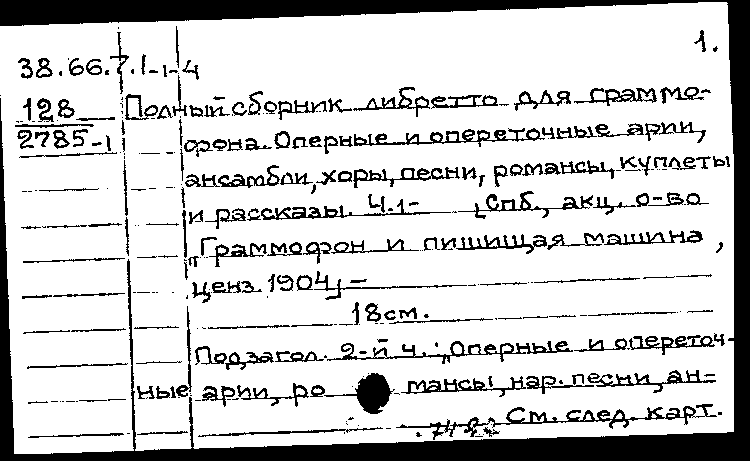 1.
38.66.7.1-1-4
128 Полный сборник либретто для граммо-
2785-1 фона. Оперные и опереточные арии,
ансамбли, хоры, песни, романсы, куплеты
и рассказы. Ч.1- [Спб., акц. о-во
„Граммофон и пишищая машина,
ценз. 1904] –
18см.
Подзагол. 2-й ч.: „Оперные и опереточ-
ные арии, ро мансы, нар. песни, ан=
См. след. карт.